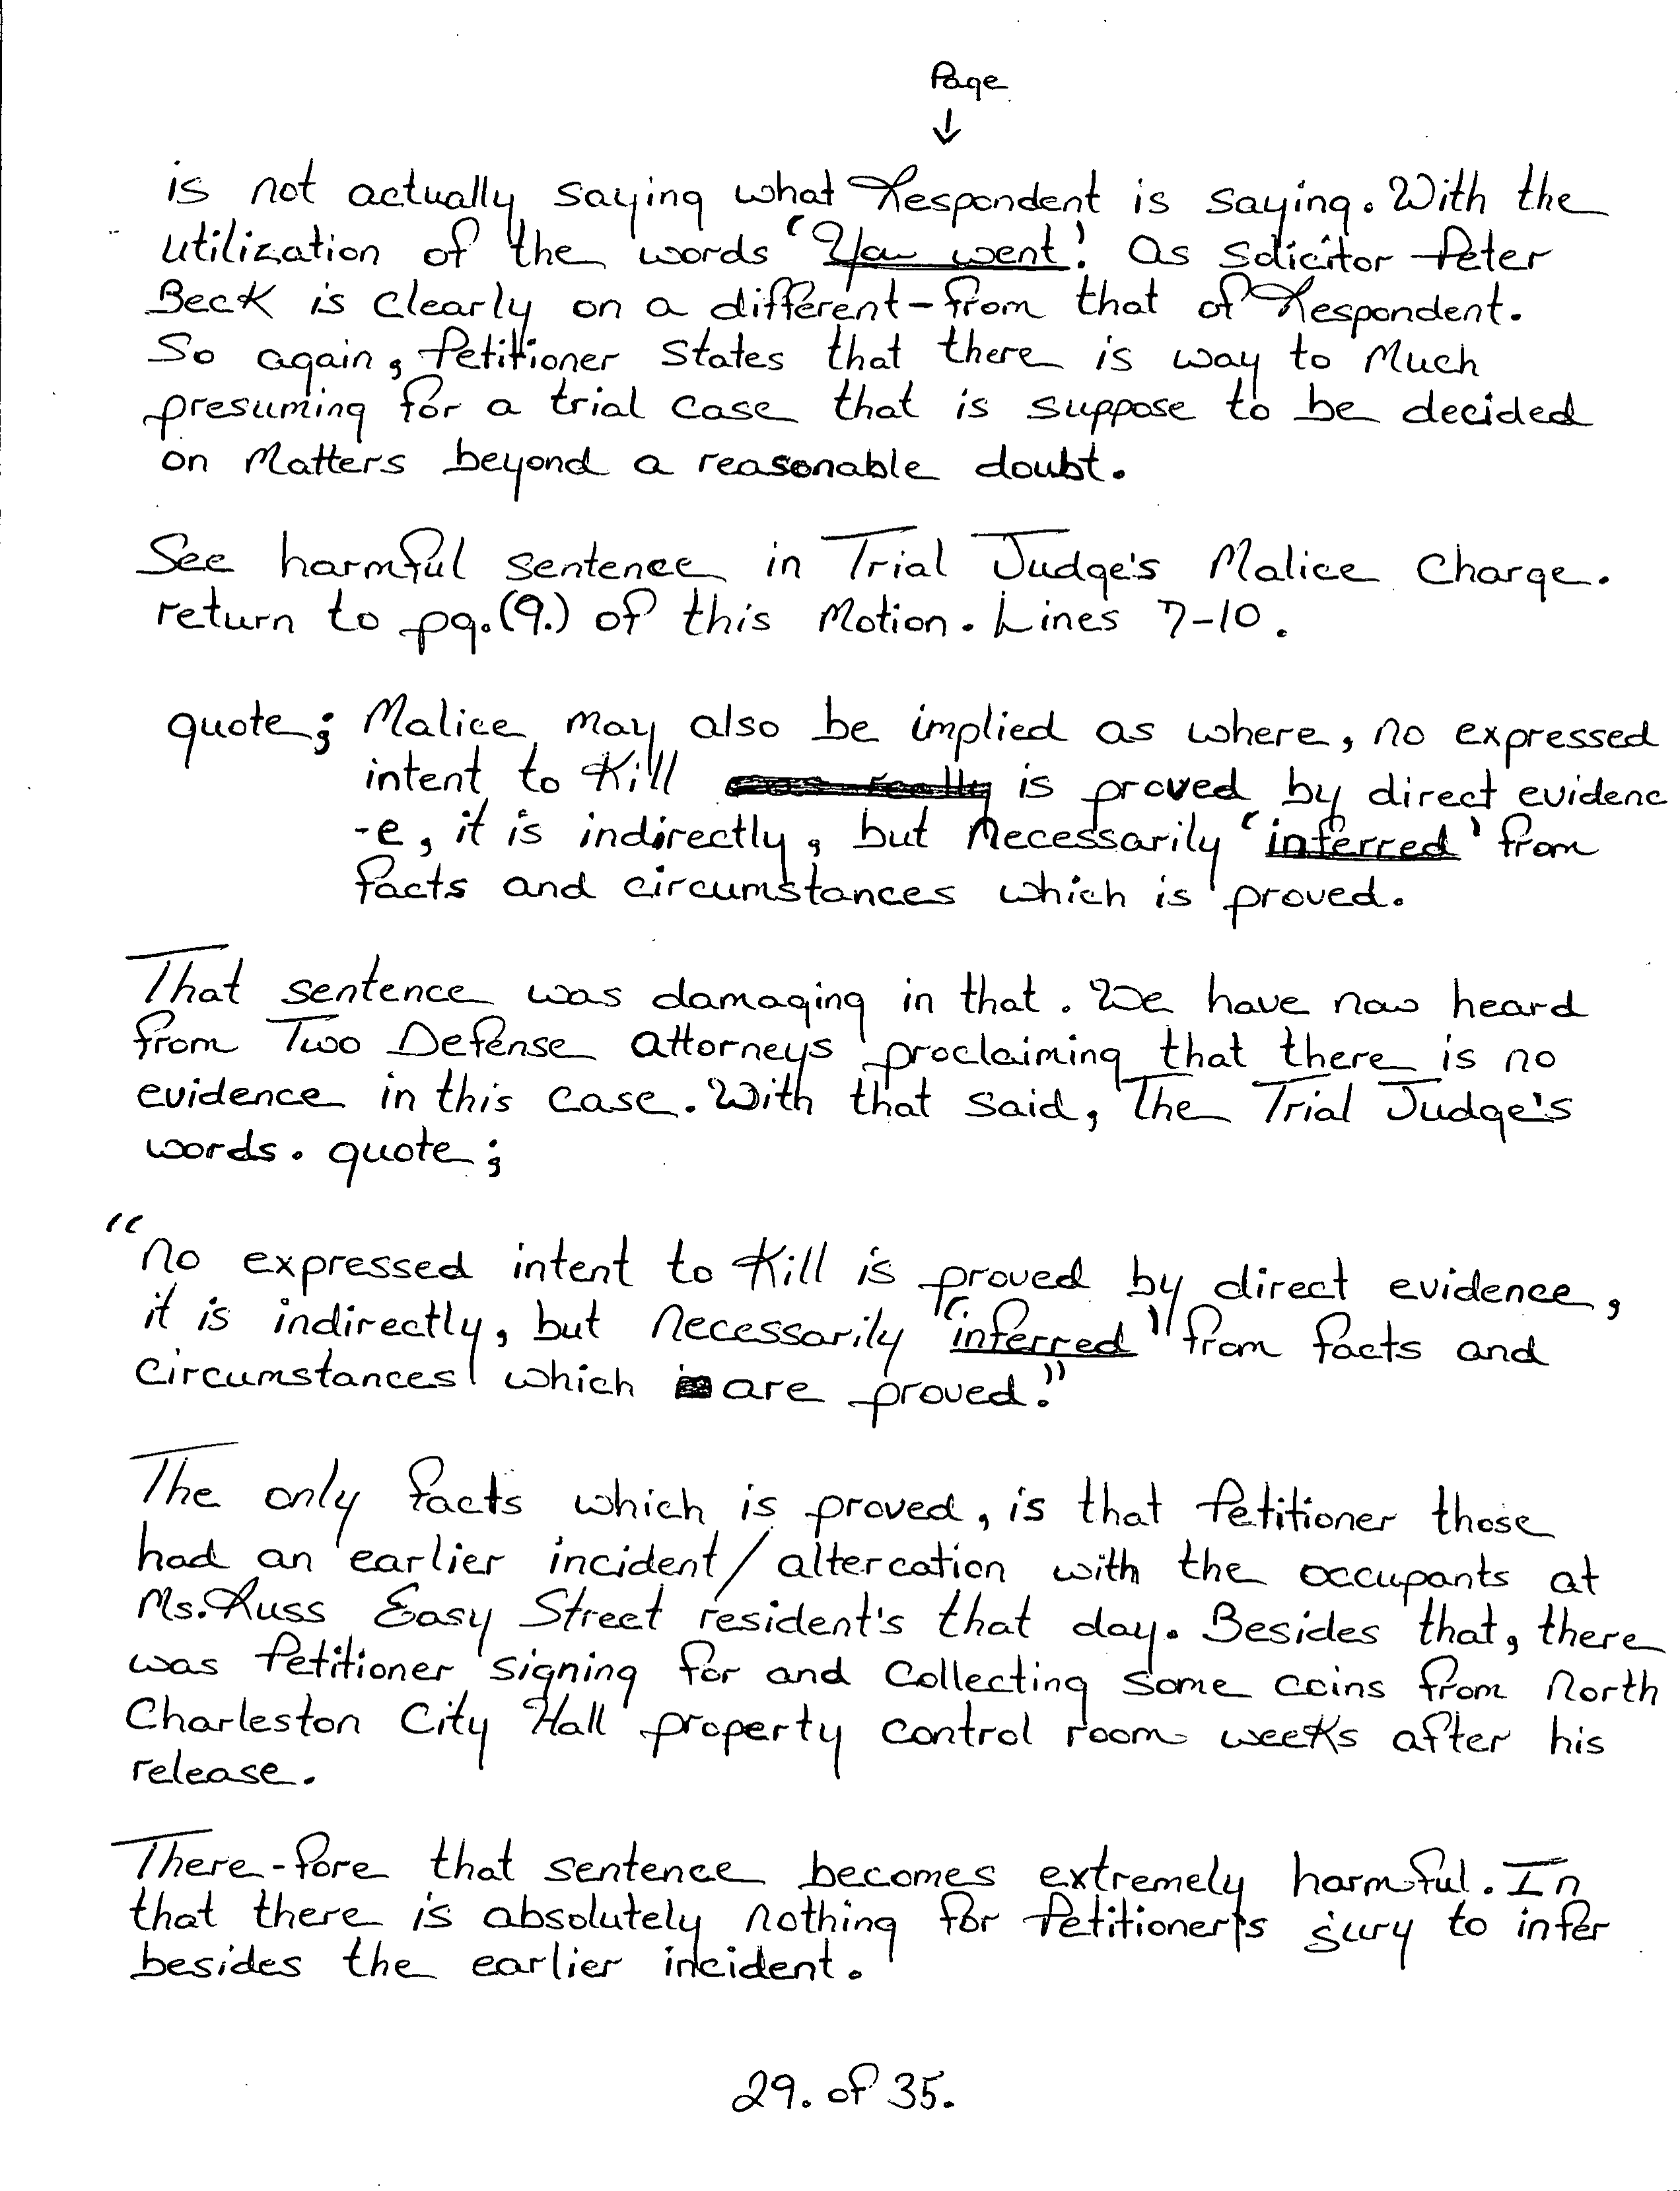 Page
↓
is not actually saying what Respondent is saying. With the
utilization of the words 'You went'. As Solicitor Peter
Beck is clearly on a different-from that of Respondent.
So again, Petitioner States that there is way to Much
presuming for a trial case that is suppose to be decided
on Matters beyond a reasonable doubt.
See harmful sentence in Trial Judge's Malice Charge.
return to pg.(9.) of this Motion. Lines 7-10.
quote; Malice may also be implied as where, no expressed
intent to Kill is proved by direct evidenc
-e, it is indirectly, but necessarily 'inferred' from
facts and circumstances which is proved.
That sentence was damaging in that. We have now heard
from Two Defense attorneys proclaiming that there is no
evidence in this case. With that said, The Trial Judge's
words. quote;
"no expressed intent to Kill is proved by direct evidence,
it is indirectly, but necessarily "inferred" from facts and
circumstances which are proved."
The only facts which is proved, is that Petitioner those
had an earlier incident/altercation with the occupants at
Ms. Russ Easy Street resident's that day. Besides that, there
was Petitioner signing for and collecting some coins from North
Charleston City Hall property control room weeks after his
release.
There-fore that sentence becomes extremely harmful. In
that there is absolutely nothing for Petitioner's jury to infer
besides the earlier incident.
29. of 35.